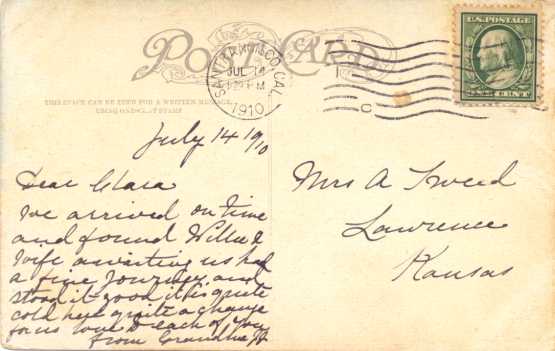 POST CARD
THIS SPACE CAN BE USED FOR A WRITTEN MESSAGE
USING ONE-CENT STAMP
SAN FRANCISCO, CAL.
JUL 14
PM
1910
U.S. POSTAGE
CENT
July 14 1910
Dear Clara
We arrived on time
and found Willie &
Wife awaiting us had
a fine Journey and
stood it good it is quite
cold here quite a change
for us love to each of you
from Grandma
Mrs A Tweed
Lawrence
Kansas